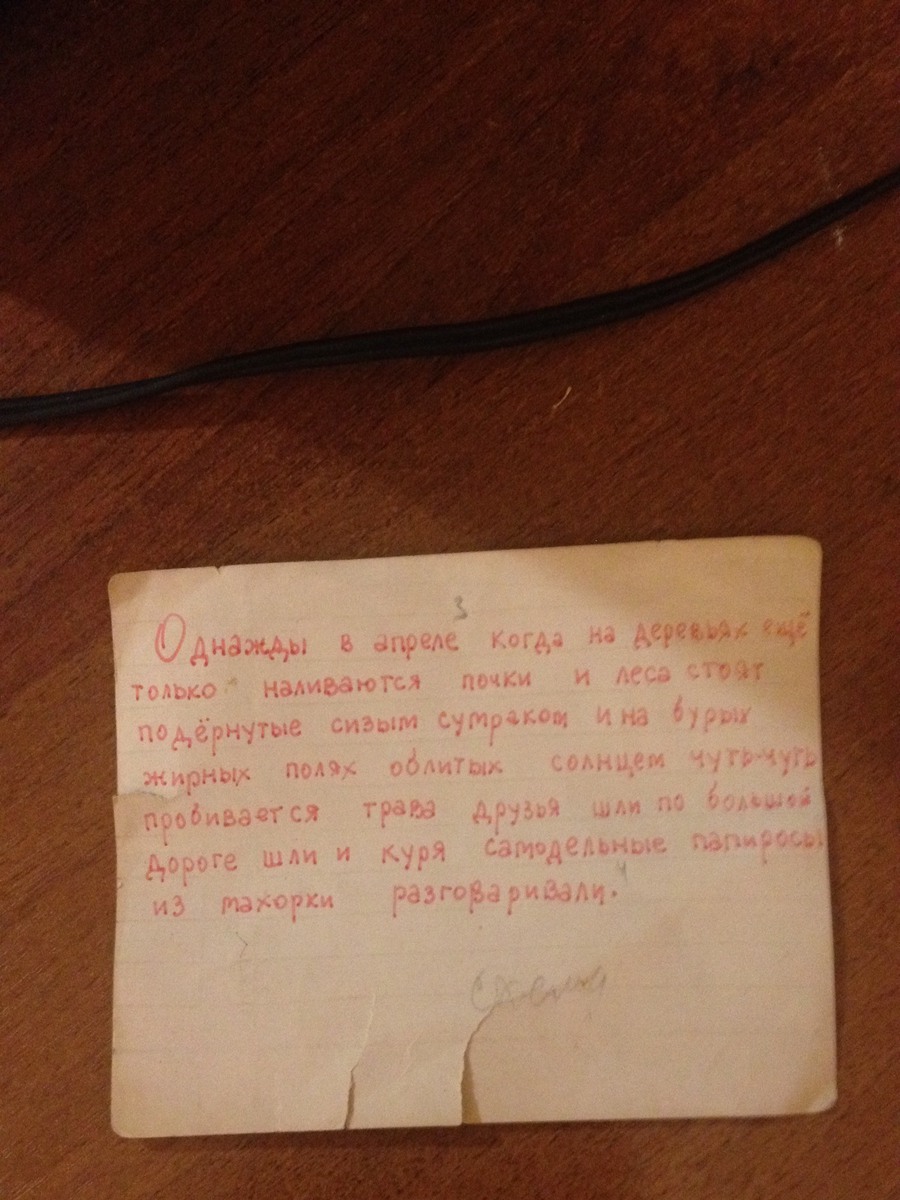 3
Однажды в апреле когда на деревьях ещё
только наливаются почки и леса стоят
подёрнутые сизым сумраком и на бурых
жирных полях облитых солнцем чуть-чуть
пробивается трава друзья шли по большой
дороге шли и куря самодельные папиросы
из махорки разговаривали.